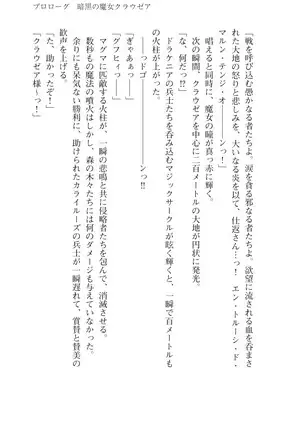 プロローグ　暗黒の魔女クラウゼア
『戦を呼び込む愚かなる者たちよ、涙を貪る邪なる者たちよ。欲望に流される血を呑まさ
れた大地の怒りと悲しみを、大いなる炎を以て、仕返さん…っ！　エン・トルーシ・ド・
マルン・テンジ・オ━━━ンっ！』
唱えると同時に、魔女の瞳が真っ赤に輝く。
次の瞬間、クラウゼアを中心に二百メートルの大地が円状に発光。
「な、何だっ!?」
ドラケニアの兵士たちを呑み込むマジックサークルが眩く輝くと、一瞬で百メートルも
の火柱が上がった。
━━━っドゴ━━━━━━━ンっ!!
「ぎゃあぁっ━━」
「グフヒィっ━━」
マグマに匹敵する火柱が、一瞬の悲鳴と共に侵略者たちを包んで、消滅させる。
数秒もの魔法の噴火はしかし、森の木々たちには何のダメージも与えていなかった。
余りにも呆気ない勝利に、助けられたカライルーズの兵士が一瞬遅れて、賞賛と賛美の
歓声を上げる。
「た、助かったぞ！」
「クラウゼア様っ！」